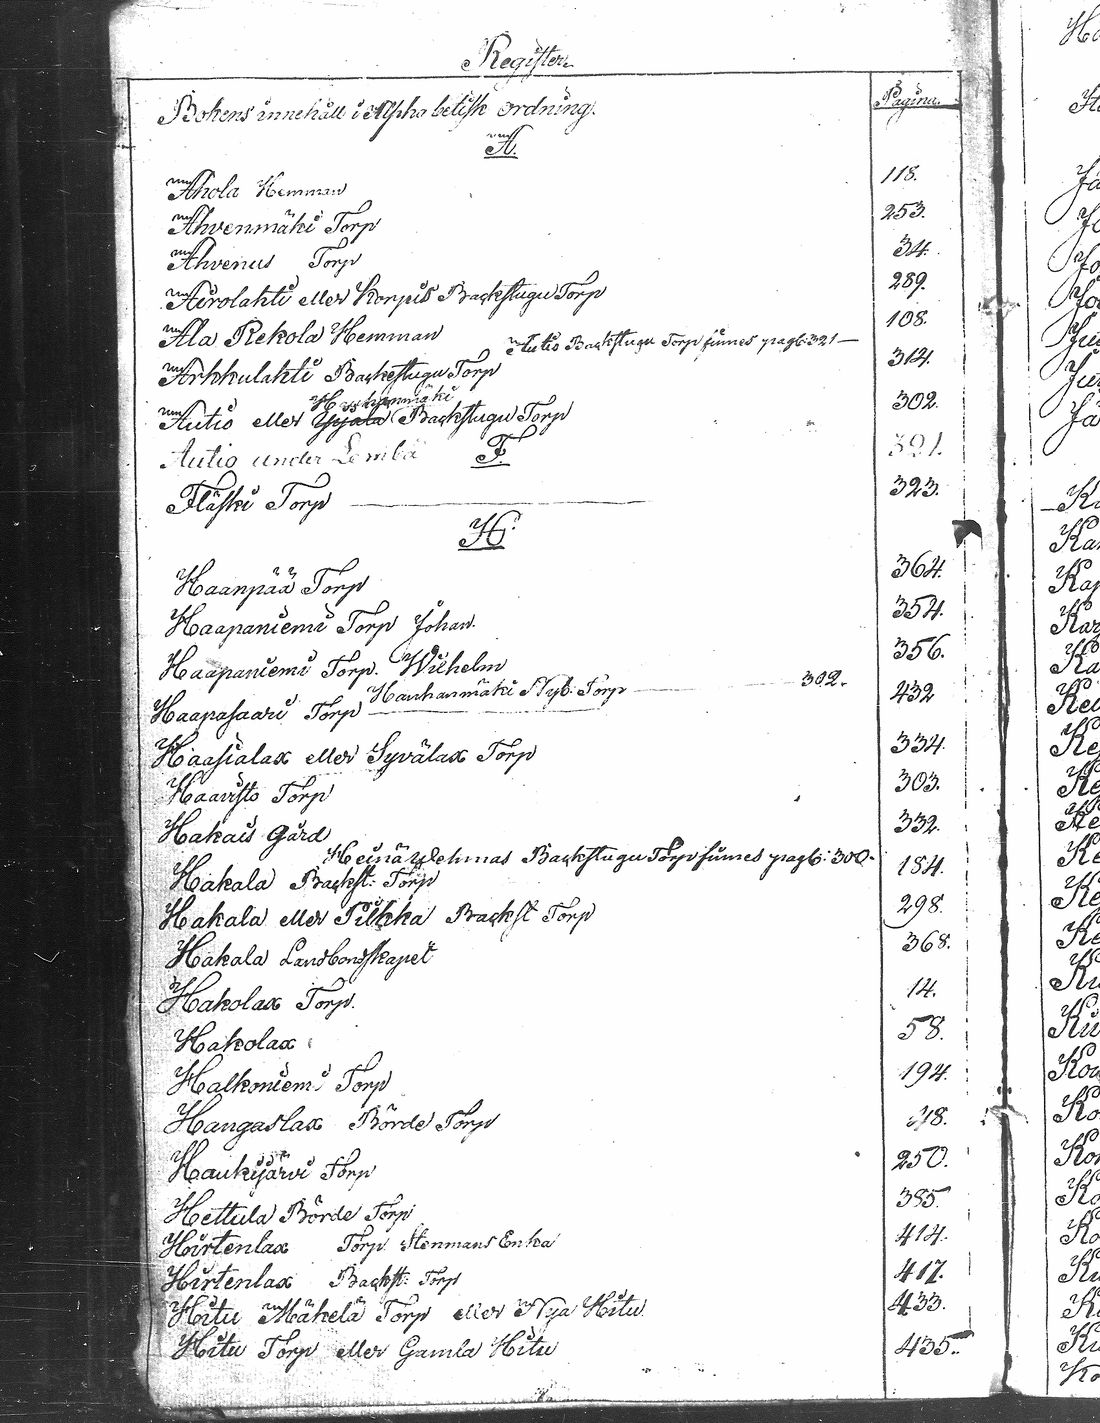 Register
Bokens innehåll i Alphabetisk ordning. Pagina.
A.
Ahola Hemman 118.
Ahvenmäki Torp 253.
Ahvenus Torp 34.
Airolahti eller Korpis Backstugu Torp 289.
Ala Rekola Hemman 108.
Autio Backstugu Torp finnes pag: 321
Arkkulahti Backstugu Torp 314.
Autio eller Backstugu Torp 302.
Autio under Lembä 321.
F.
Fläski Torp 323.
H.
Haanpää Torp 364.
Haapaniemi Torp Johan. 354.
Haapaniemi Torp. Wilhelm 356.
Hauhanmäki Nyb: Torp 302.
Haapasaari Torp 432
Haasialax eller Syvälax Torp 334.
Haavisto Torp 303.
Hakais Gård 332.
Backstugu Torp finnes pag: 300.
Hakala Backst: Torp 184.
Hakala eller Pilkka Backst Torp 298.
Hakala Landbondskapet 368.
Hakolax Torp. 14.
Hakolax 58.
Halkoniemi Torp 194.
Hangaslax Börde Torp
Haukijärvi Torp 250.
Hettula Börde Torp 385
Hirtenlax Torp Stenmans Enka 414.
Hirtenlax Backst: Torp 417.
Hitu Mäkelä Torp eller Nya Hitu 433.
Hitu Torp eller Gamla Hitu 435.